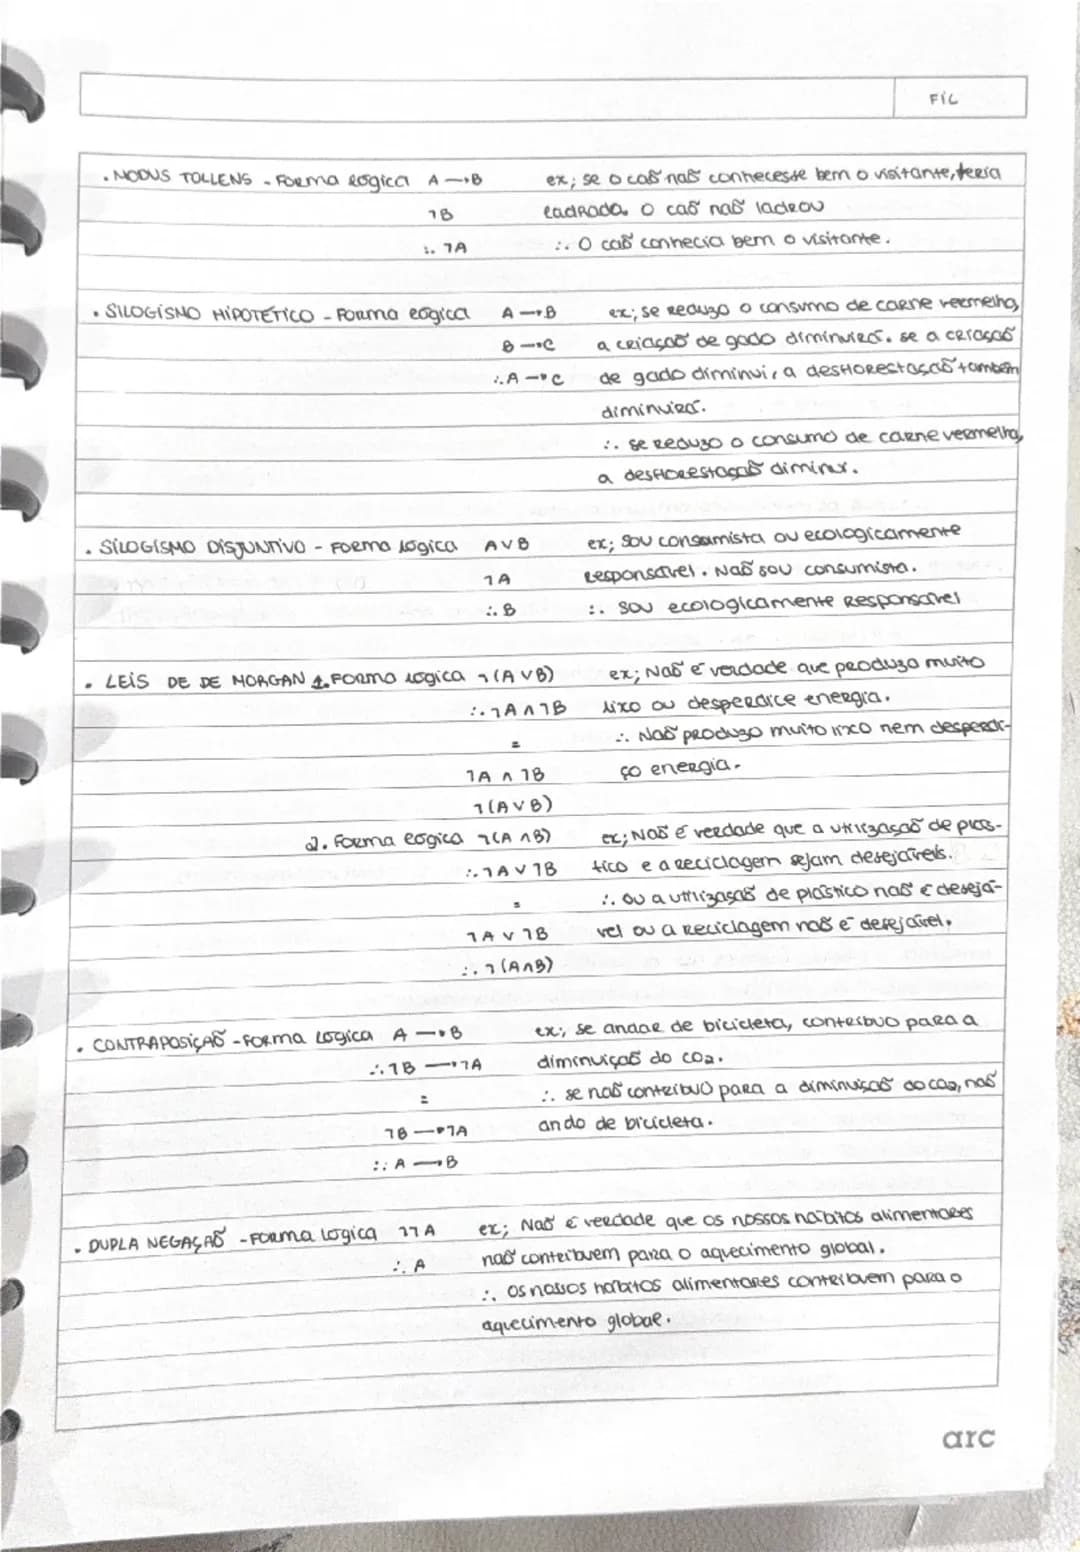 FIL
. MODUS TOLLENS - Forma lógica A → B ex; se o cão não conhecesse bem o visitante, teria
¬B ladrado. O cão não ladrou
∴ ¬A ∴ O cão conhecia bem o visitante.
. SILOGISMO HIPOTÉTICO - Forma lógica A → B ex; se reduzo o consumo de carne vermelha,
B → C a criação de gado diminuirá. se a criação
∴ A → C de gado diminui, a desflorestação também
diminuirá.
∴ se reduzo o consumo de carne vermelha,
a desflorestação diminui.
. SILOGISMO DISJUNTIVO - Forma lógica A V B ex; Sou consumista ou ecologicamente
¬A responsável. Não sou consumista.
∴ B ∴ sou ecologicamente responsável
. LEIS DE DE MORGAN 1. Forma lógica ¬(A V B) ex; Não é verdade que produzo muito
∴ ¬A ∧ ¬B lixo ou desperdice energia.
= ∴ Não produzo muito lixo nem desperdi-
¬A ∧ ¬B ço energia.
¬(A V B)
2. Forma lógica ¬(A ∧ B) ex; Não é verdade que a utilização de plás-
∴ ¬A V ¬B tico e a reciclagem sejam desejáveis.
= ∴ ou a utilização de plástico não é desejá-
¬A V ¬B vel ou a reciclagem não é desejável.
∴ ¬(A∧B)
. CONTRAPOSIÇÃO - Forma lógica A → B ex; se andar de bicicleta, contribuo para a
∴ ¬B → ¬A diminuição do CO2.
= ∴ se não contribuo para a diminuição do CO2, não
¬B → ¬A ando de bicicleta.
∴ A → B
. DUPLA NEGAÇÃO - Forma lógica ¬¬A ex; Não é verdade que os nossos hábitos alimentares
∴ A não contribuem para o aquecimento global.
∴ os nossos hábitos alimentares contribuem para o
aquecimento global.
arc